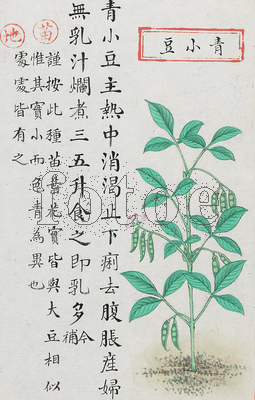 青小豆
青小豆主熱中消渴止下痢去腹脹産婦
無乳汁爛煮三五升食之即乳多今補
謹按此種苗葉花實皆與大豆相似
惟其實小而色青為異也
處處皆有之
苗
地
fotoe